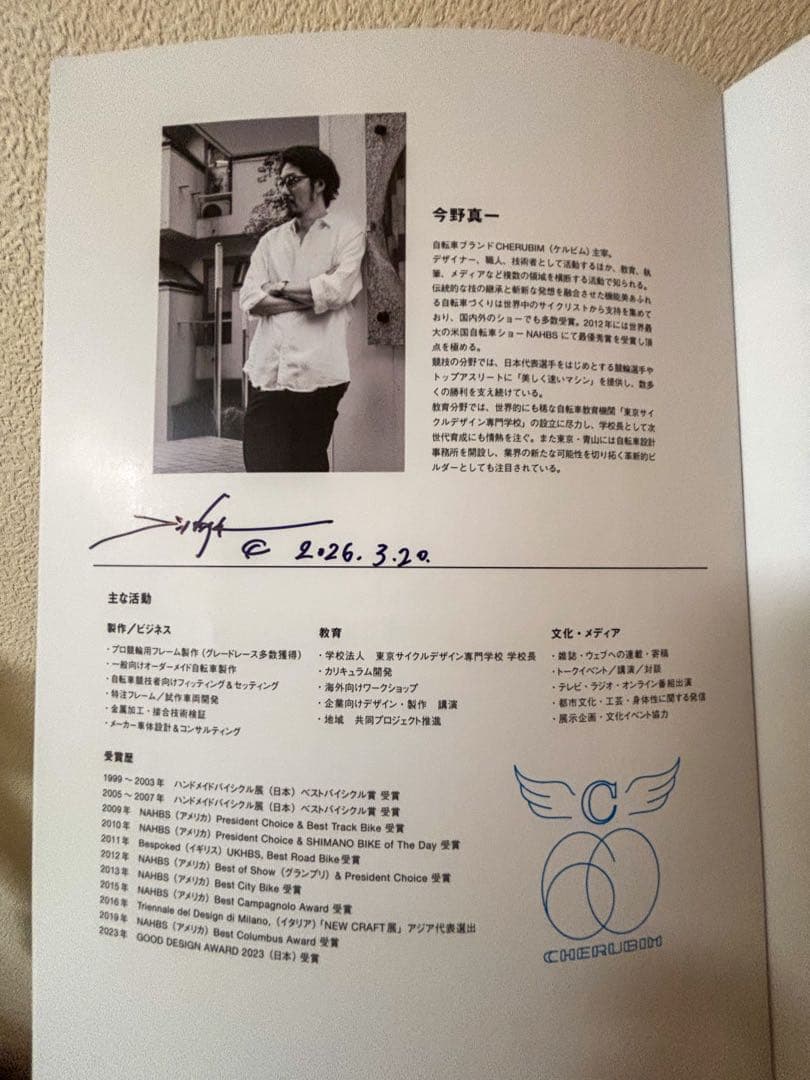 今野真一
自転車ブランドCHERUBIM（ケルビム）主宰。
デザイナー、職人、技術者として活動するほか、教育、執
筆、メディアなど複数の領域を横断する活動で知られる。
伝統的な技の継承と斬新な発想を融合させた機能美あふれ
る自転車づくりは世界中のサイクリストから支持を集めて
おり、国内外のショーでも多数受賞。2012年には世界最
大の米国自転車ショーNAHBSにて最優秀賞を受賞し頂
点を極める。
競技の分野では、日本代表選手をはじめとする競輪選手や
トップアスリートに「美しく速いマシン」を提供し、数多
くの勝利を支え続けている。
教育分野では、世界的にも稀な自転車教育機関「東京サイ
クルデザイン専門学校」の設立に尽力し、学校長として次
世代育成にも情熱を注ぐ。また東京・青山には自転車設計
事務所を開設し、業界の新たな可能性を切り拓く革新的ビ
ルダーとしても注目されている。
2026.3.20.
主な活動
製作／ビジネス
・プロ競輪用フレーム製作（グレードレース多数獲得）
・一般向けオーダーメイド自転車製作
・自転車競技者向けフィッティング＆セッティング
・特注フレーム／試作車両開発
・金属加工・接合技術検証
・メーカー車体設計＆コンサルティング
教育
・学校法人　東京サイクルデザイン専門学校 学校長
・カリキュラム開発
・海外向けワークショップ
・企業向けデザイン・製作　講演
・地域　共同プロジェクト推進
文化・メディア
・雑誌・ウェブへの連載・寄稿
・トークイベント／講演／対談
・テレビ・ラジオ・オンライン番組出演
・都市文化・工芸・身体性に関する発信
・展示企画・文化イベント協力
受賞歴
1999～2003年　ハンドメイドバイシクル展（日本）ベストバイシクル賞 受賞
2005～2007年　ハンドメイドバイシクル展（日本）ベストバイシクル賞 受賞
2009年　NAHBS（アメリカ）President Choice & Best Track Bike 受賞
2010年　NAHBS（アメリカ）President Choice & SHIMANO BIKE of The Day 受賞
2011年　Bespoked（イギリス）UKHBS, Best Road Bike受賞
2012年　NAHBS（アメリカ）Best of Show（グランプリ）& President Choice 受賞
2013年　NAHBS（アメリカ）Best City Bike 受賞
2015年　NAHBS（アメリカ）Best Campagnolo Award 受賞
2016年　Triennale del Design di Milano,（イタリア）「NEW CRAFT展」アジア代表選出
2019年　NAHBS（アメリカ）Best Columbus Award 受賞
2023年　GOOD DESIGN AWARD 2023（日本）受賞
C
CHERUBIM